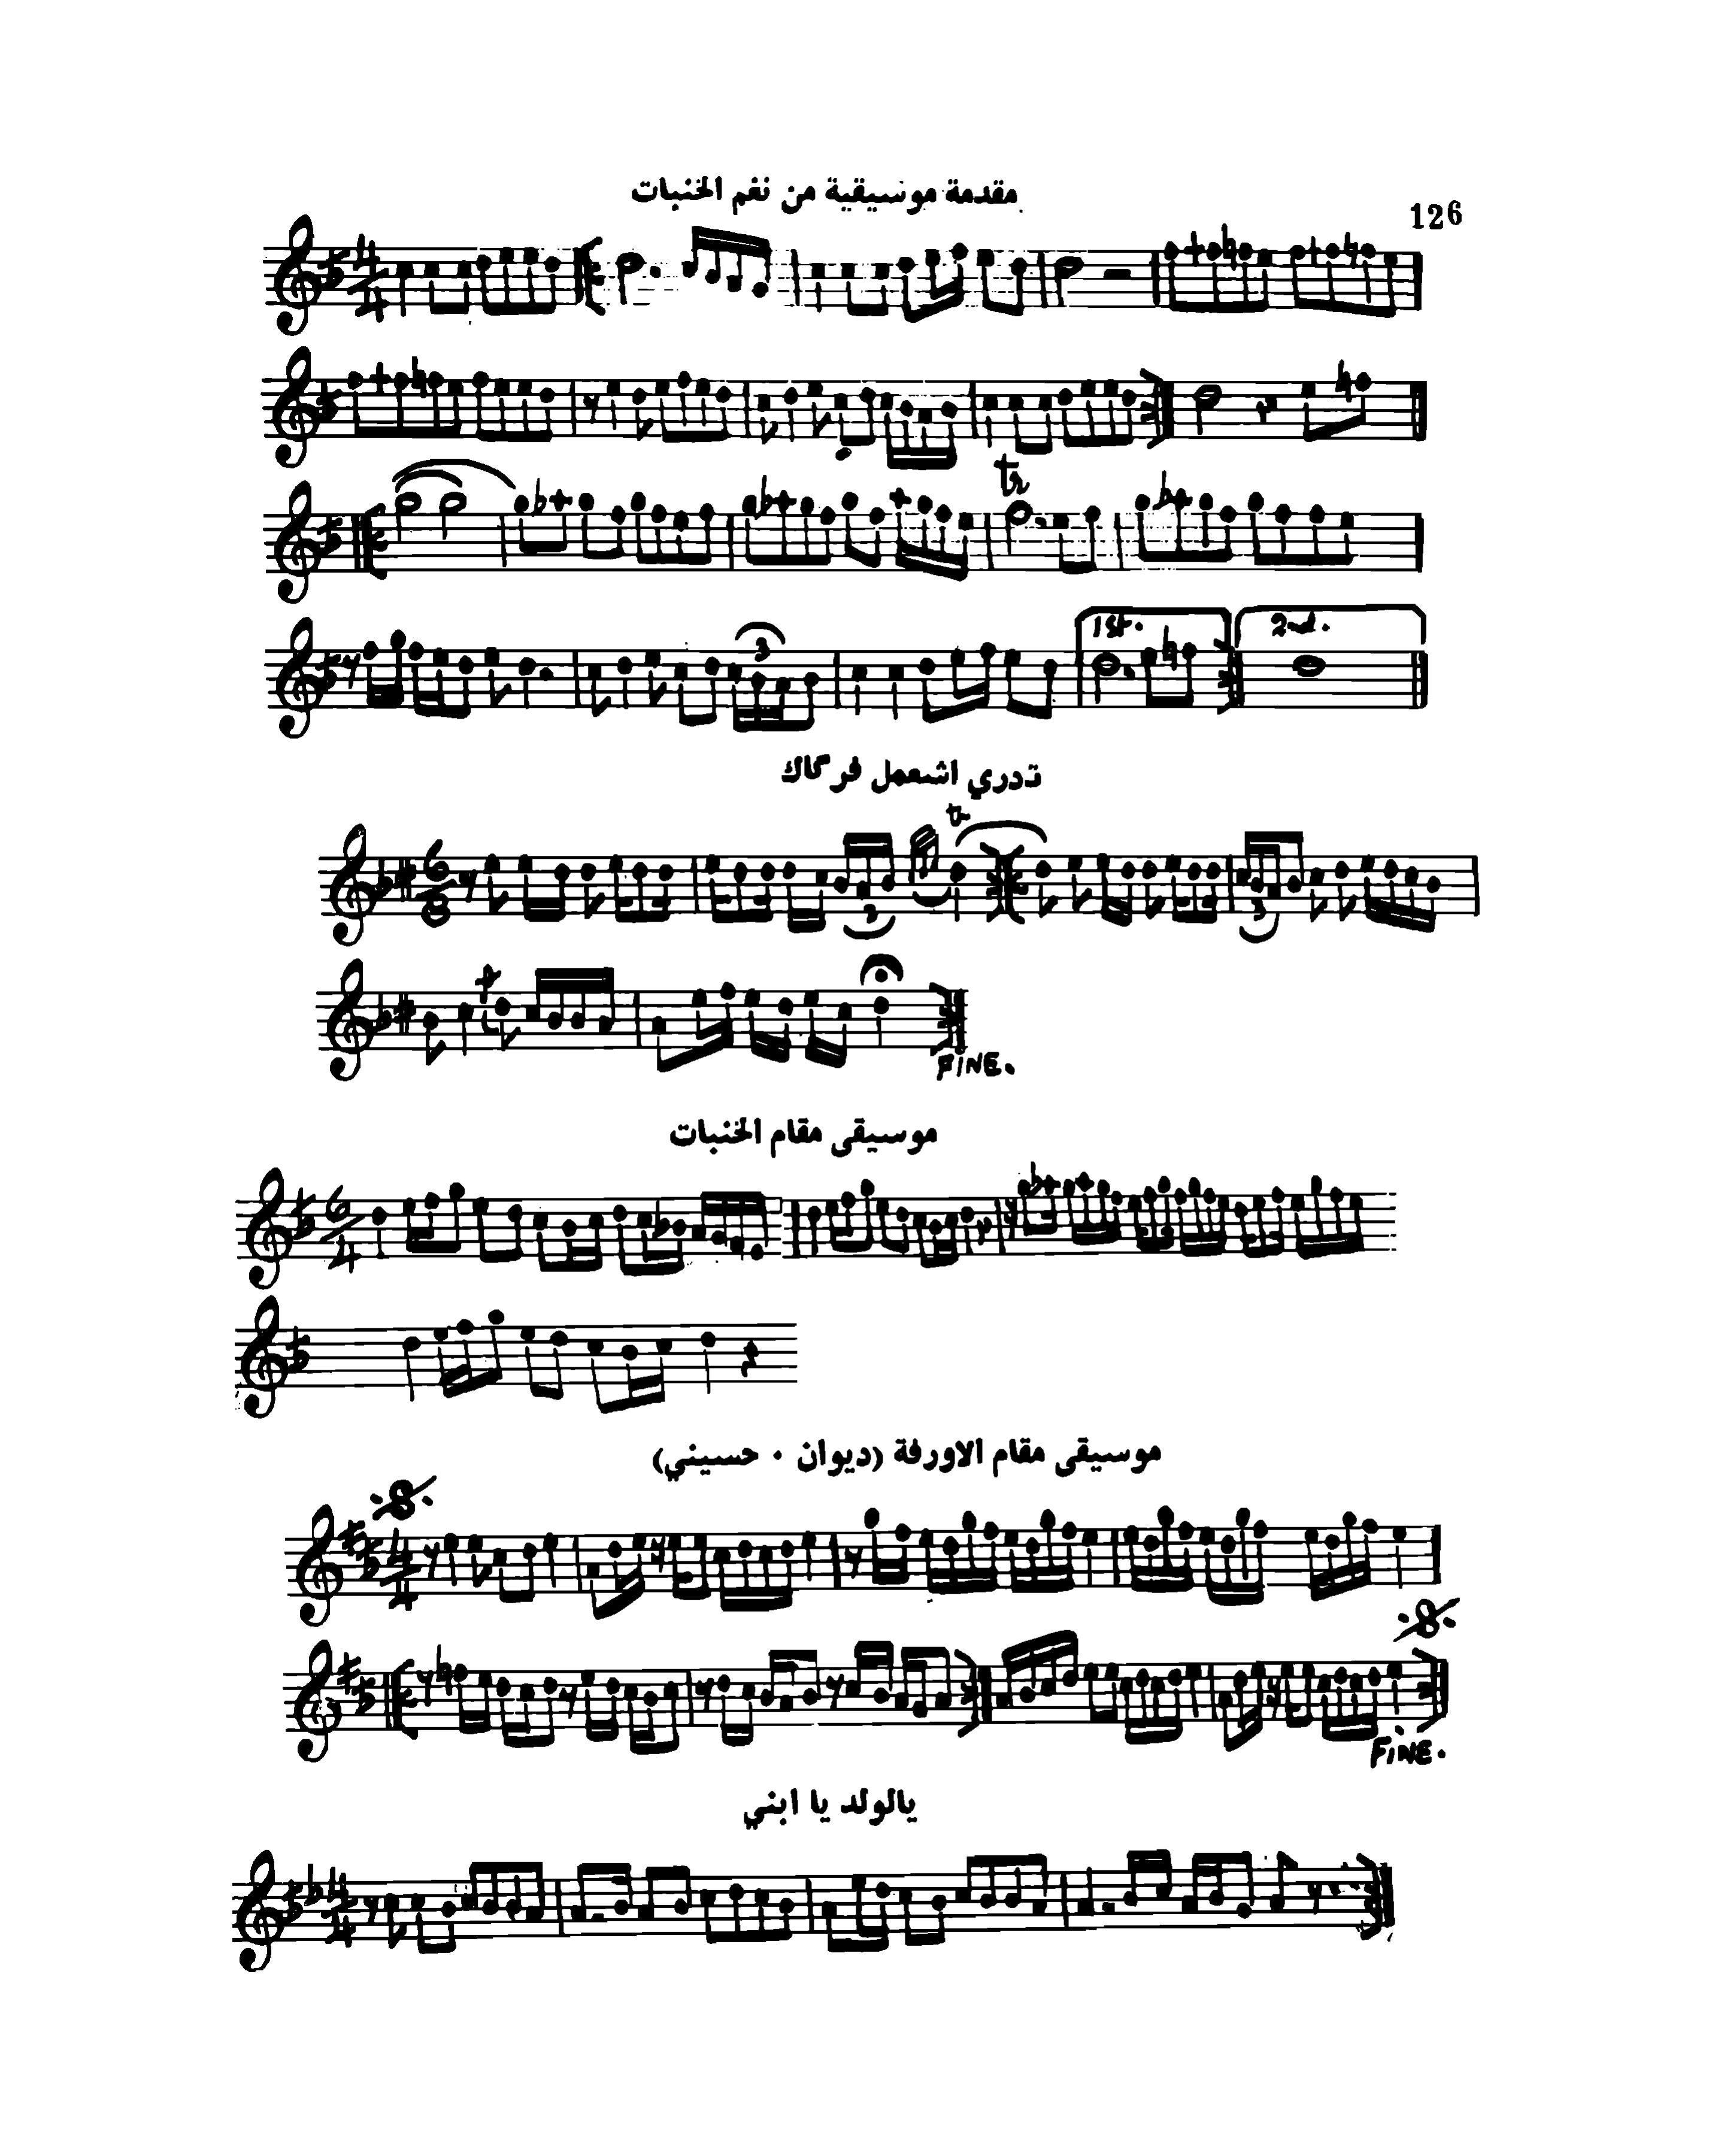 126
مقدمة موسيقية من نغم الخنبات
tr
3
1st. 2nd.
تدري اشعمل فرگاك
tr
6
8
3 3
FINE.
موسيقى مقام الخنبات
6
4
موسيقى مقام الاورفة (ديوان . حسيني)
4
4
FINE.
يالولد يا ابني
4
4